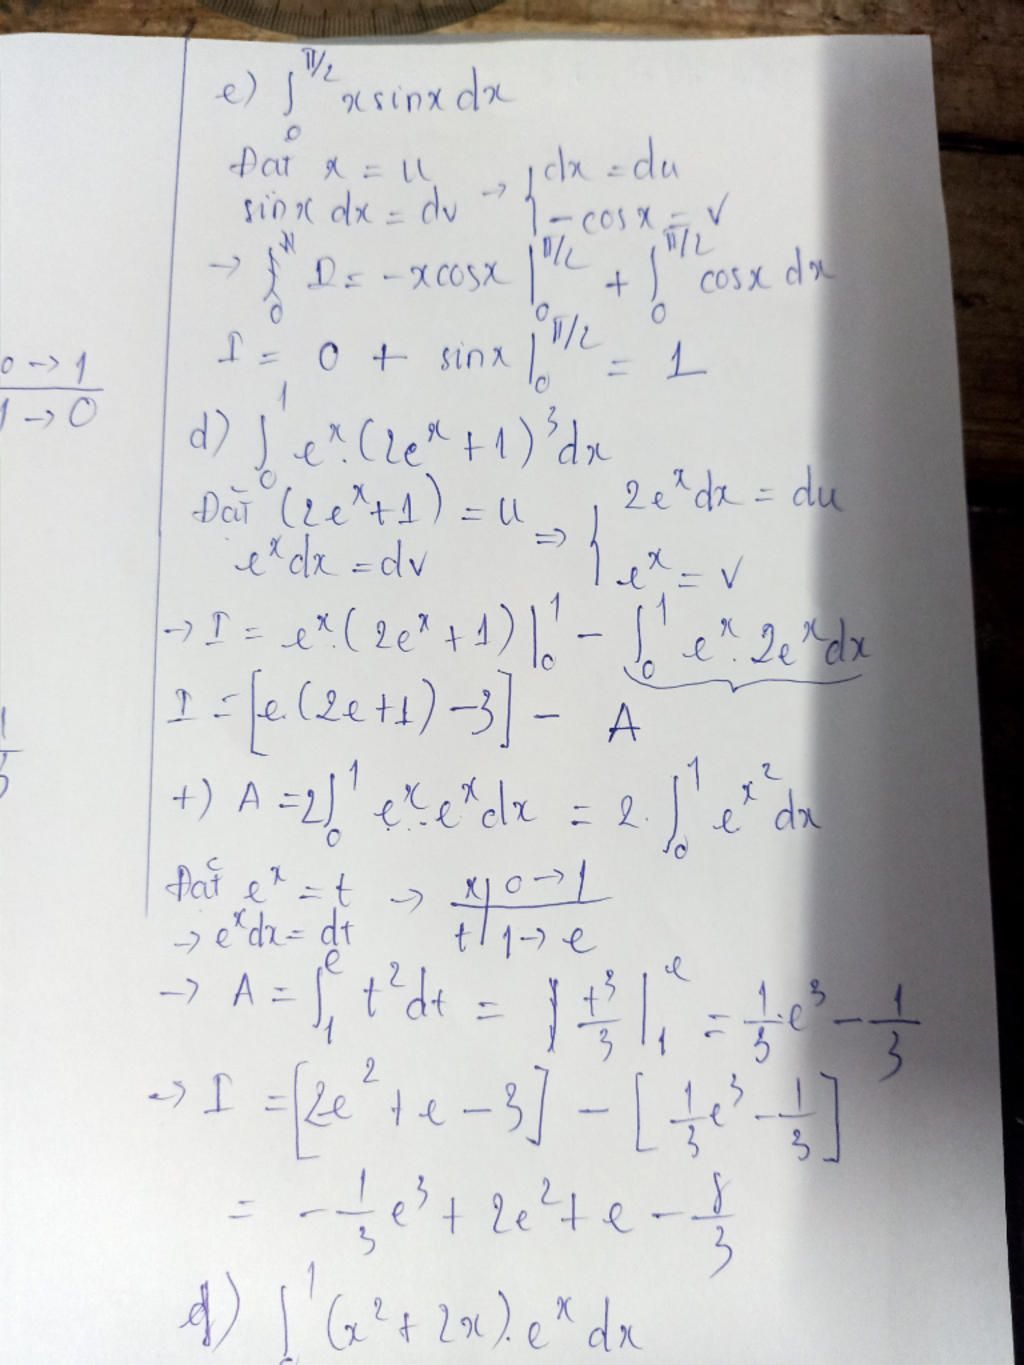 0 → 1
1 → 0
1/3
e) ∫₀^{π/2} x sinx dx
Đặt x = u
sinx dx = dv → { dx = du
-cosx = v
→ I = -xcosx |₀^{π/2} + ∫₀^{π/2} cosx dx
I = 0 + sinx |₀^{π/2} = 1
d) ∫₀¹ eˣ.(2eˣ + 1)³ dx
Đặt (2eˣ+1) = u ⇒ { 2eˣdx = du
eˣdx = dv
eˣ = v
→ I = eˣ.(2eˣ + 1) |₀¹ - ∫₀¹ eˣ.2eˣdx
I = [e.(2e+1) - 3] - A
+) A = 2∫₀¹ eˣ.eˣdx = 2.∫₀¹ e^{x²} dx
Đặt eˣ = t → x | 0 → 1
→ eˣdx = dt
t | 1 → e
→ A = ∫₁^e t²dt = t³/3 |₁^e = 1/3.e³ - 1/3
→ I = [2e² + e - 3] - [1/3 e³ - 1/3]
= -1/3 e³ + 2e² + e - 8/3
g) ∫¹ (x² + 2x).eˣ dx